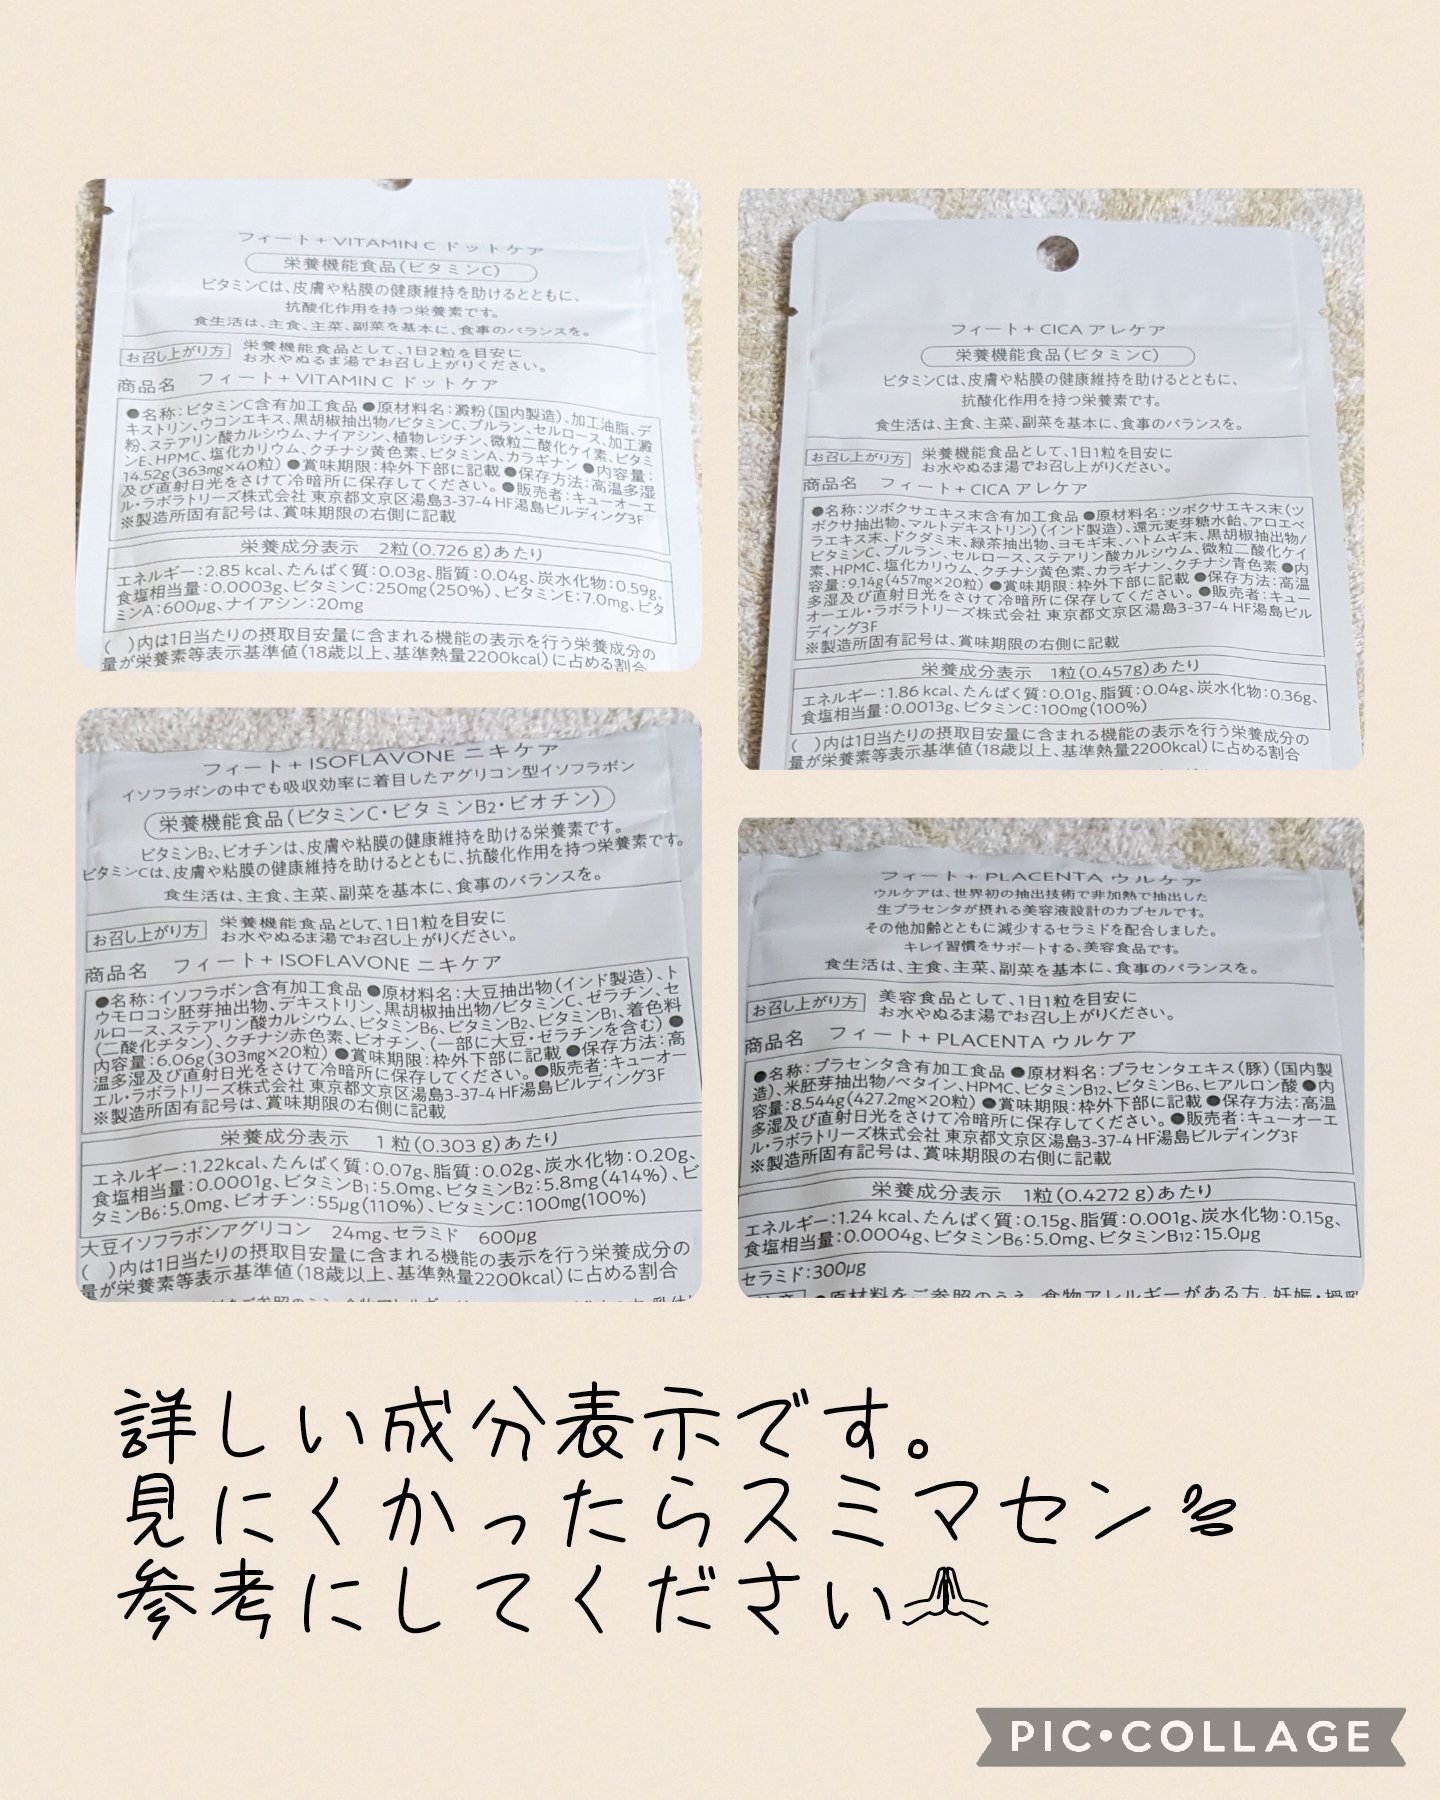 フィート+ VITAMIN C ドットケア
栄養機能食品(ビタミンC)
ビタミンCは、皮膚や粘膜の健康維持を助けるとともに、
抗酸化作用を持つ栄養素です。
食生活は、主食、主菜、副菜を基本に、食事のバランスを。
お召し上がり方 栄養機能食品として、1日2粒を目安に
お水やぬるま湯でお召し上がりください。
商品名 フィート+ VITAMIN C ドットケア
●名称:ビタミンC含有加工食品 ●原材料名:澱粉(国内製造)、加工油脂、デ
キストリン、ウコンエキス、黒胡椒抽出物/ビタミンC、プルラン、セルロース、加工澱
粉、ステアリン酸カルシウム、ナイアシン、植物レシチン、微粒二酸化ケイ素、ビタミ
ンE、HPMC、塩化カリウム、クチナシ黄色素、ビタミンA、カラギナン ●内容量:
14.52g(363mg×40粒) ●賞味期限:枠外下部に記載 ●保存方法:高温多湿
及び直射日光をさけて冷暗所に保存してください。●販売者:キューオーエ
ル・ラボラトリーズ株式会社 東京都文京区湯島3-37-4 HF湯島ビルディング3F
※製造所固有記号は、賞味期限の右側に記載
栄養成分表示 2粒(0.726 g)あたり
エネルギー:2.85 kcal、たんぱく質:0.03g、脂質:0.04g、炭水化物:0.59g、
食塩相当量:0.0003g、ビタミンC:250mg(250%)、ビタミンE:7.0mg、ビタ
ミンA:600μg、ナイアシン:20mg
( )内は1日当たりの摂取目安量に含まれる機能の表示を行う栄養成分の
量が栄養素等表示基準値(18歳以上、基準熱量2200kcal)に占める割合
フィート+ CICA アレケア
栄養機能食品(ビタミンC)
ビタミンCは、皮膚や粘膜の健康維持を助けるとともに、
抗酸化作用を持つ栄養素です。
食生活は、主食、主菜、副菜を基本に、食事のバランスを。
お召し上がり方 栄養機能食品として、1日1粒を目安に
お水やぬるま湯でお召し上がりください。
商品名 フィート+ CICA アレケア
●名称:ツボクサエキス末含有加工食品 ●原材料名:ツボクサエキス末(ツ
ボクサ抽出物、マルトデキストリン)(インド製造)、還元麦芽糖水飴、アロエベ
ラエキス末、ドクダミ末、緑茶抽出物、ヨモギ末、ハトムギ末、黒胡椒抽出物/
ビタミンC、プルラン、セルロース、ステアリン酸カルシウム、微粒二酸化ケイ
素、HPMC、塩化カリウム、クチナシ黄色素、カラギナン、クチナシ青色素 ●内
容量:9.14g(457mg×20粒) ●賞味期限:枠外下部に記載 ●保存方法:高温
多湿及び直射日光をさけて冷暗所に保存してください。●販売者:キュー
オーエル・ラボラトリーズ株式会社 東京都文京区湯島3-37-4 HF湯島ビル
ディング3F
※製造所固有記号は、賞味期限の右側に記載
栄養成分表示 1粒(0.457g)あたり
エネルギー:1.86 kcal、たんぱく質:0.01g、脂質:0.04g、炭水化物:0.36g、
食塩相当量:0.0013g、ビタミンC:100mg(100%)
( )内は1日当たりの摂取目安量に含まれる機能の表示を行う栄養成分の
量が栄養素等表示基準値(18歳以上、基準熱量2200kcal)に占める割合
フィート+ ISOFLAVONE ニキケア
イソフラボンの中でも吸収効率に着目したアグリコン型イソフラボン
栄養機能食品(ビタミンC・ビタミンB2・ビオチン)
ビタミンB2、ビオチンは、皮膚や粘膜の健康維持を助ける栄養素です。
ビタミンCは、皮膚や粘膜の健康維持を助けるとともに、抗酸化作用を持つ栄養素です。
食生活は、主食、主菜、副菜を基本に、食事のバランスを。
お召し上がり方 栄養機能食品として、1日1粒を目安に
お水やぬるま湯でお召し上がりください。
商品名 フィート+ ISOFLAVONE ニキケア
●名称:イソフラボン含有加工食品 ●原材料名:大豆抽出物(インド製造)、ト
ウモロコシ胚芽抽出物、デキストリン、黒胡椒抽出物/ビタミンC、ゼラチン、セ
ルロース、ステアリン酸カルシウム、ビタミンB6、ビタミンB2、ビタミンB1、着色料
(二酸化チタン)、クチナシ赤色素、ビオチン、(一部に大豆・ゼラチンを含む) ●
内容量:6.06g(303mg×20粒) ●賞味期限:枠外下部に記載 ●保存方法:高
温多湿及び直射日光をさけて冷暗所に保存してください。●販売者:キューオー
エル・ラボラトリーズ株式会社 東京都文京区湯島3-37-4 HF湯島ビルディング3F
※製造所固有記号は、賞味期限の右側に記載
栄養成分表示 1粒(0.303 g)あたり
エネルギー:1.22kcal、たんぱく質:0.07g、脂質:0.02g、炭水化物:0.20g、
食塩相当量:0.0001g、ビタミンB1:5.0mg、ビタミンB2:5.8mg(414%)、ビ
タミンB6:5.0mg、ビオチン:55μg(110%)、ビタミンC:100mg(100%)
大豆イソフラボンアグリコン 24mg、セラミド 600μg
( )内は1日当たりの摂取目安量に含まれる機能の表示を行う栄養成分の
量が栄養素等表示基準値(18歳以上、基準熱量2200kcal)に占める割合
フィート+ PLACENTA ウルケア
ウルケアは、世界初の抽出技術で非加熱で抽出した
生プラセンタが摂れる美容液設計のカプセルです。
その他加齢とともに減少するセラミドを配合しました。
キレイ習慣をサポートする、美容食品です。
食生活は、主食、主菜、副菜を基本に、食事のバランスを。
お召し上がり方 美容食品として、1日1粒を目安に
お水やぬるま湯でお召し上がりください。
商品名 フィート+ PLACENTA ウルケア
●名称:プラセンタ含有加工食品 ●原材料名:プラセンタエキス(豚)(国内製
造)、米胚芽抽出物/ベタイン、HPMC、ビタミンB12、ビタミンB6、ヒアルロン酸 ●内
容量:8.544g(427.2mg×20粒) ●賞味期限:枠外下部に記載 ●保存方法:高温
多湿及び直射日光をさけて冷暗所に保存してください。●販売者:キューオーエ
ル・ラボラトリーズ株式会社 東京都文京区湯島3-37-4 HF湯島ビルディング3F
※製造所固有記号は、賞味期限の右側に記載
栄養成分表示 1粒(0.4272 g)あたり
エネルギー:1.24 kcal、たんぱく質:0.15g、脂質:0.001g、炭水化物:0.15g、
食塩相当量:0.0004g、ビタミンB6:5.0mg、ビタミンB12:15.0μg
セラミド:300μg
●原材料をご参照のうえ、食物アレルギーがある方、妊娠・授乳
詳しい成分表示です。
見にくかったらスミマセン💦
参考にしてください🙏
PIC•COLLAGE